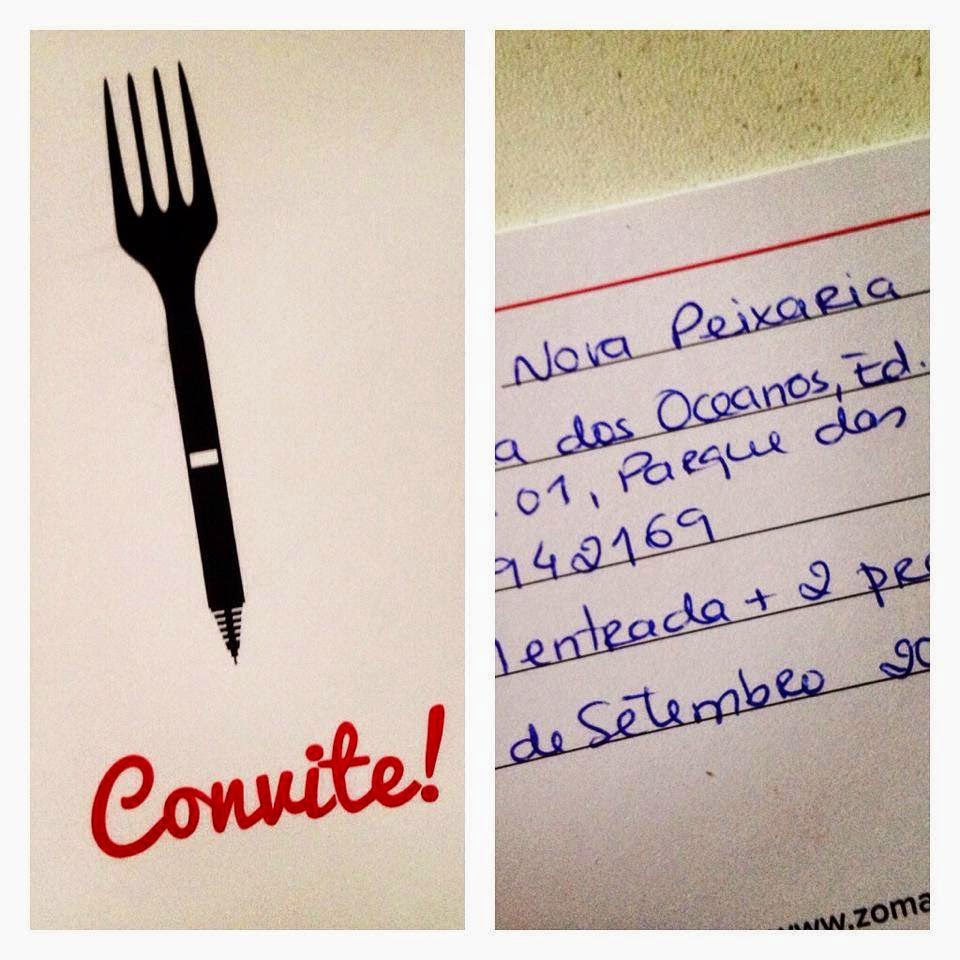 Convite!
Nova Peixaria
a dos Oceanos, Ed.
.01, Parque das
942169
1 entrada + 2 pr
de Setembro 20
www.zoma